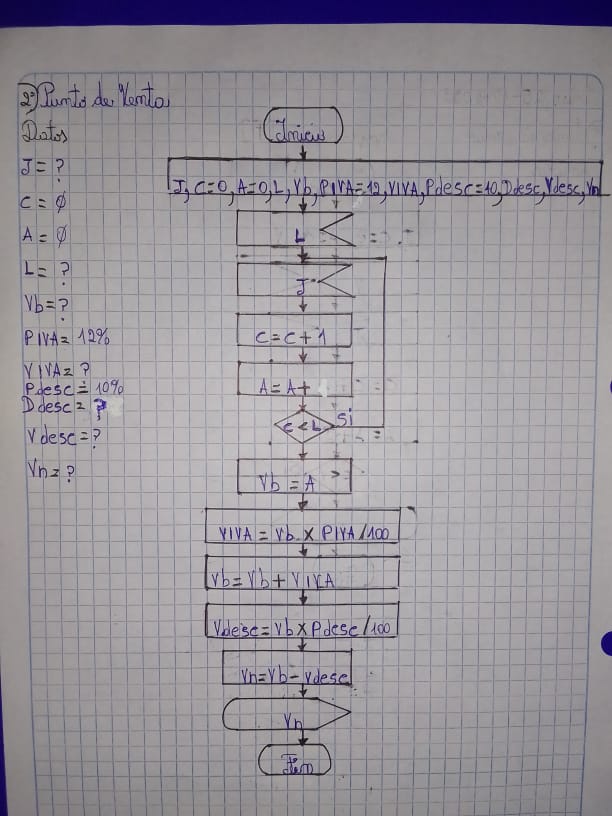 2º) Punto de Venta
Datos
J = ?
C = ∅
A = ∅
L = ?
Vb = ?
PIVA = 12%
VIVA = ?
Pdesc = 10%
Ddesc = ?
Vdesc = ?
Vn = ?
Inicio
J, C=0, A=0, L, Vb, PIVA=12, VIVA, Pdesc=10, Ddesc, Vdesc, Vn
L
J
C = C + 1
A = A +
C < L
Si
Vb = A
VIVA = Vb x PIVA/100
Vb = Vb + VIVA
Vdesc = Vb x Pdesc/100
Vn = Vb - Vdesc
Vn